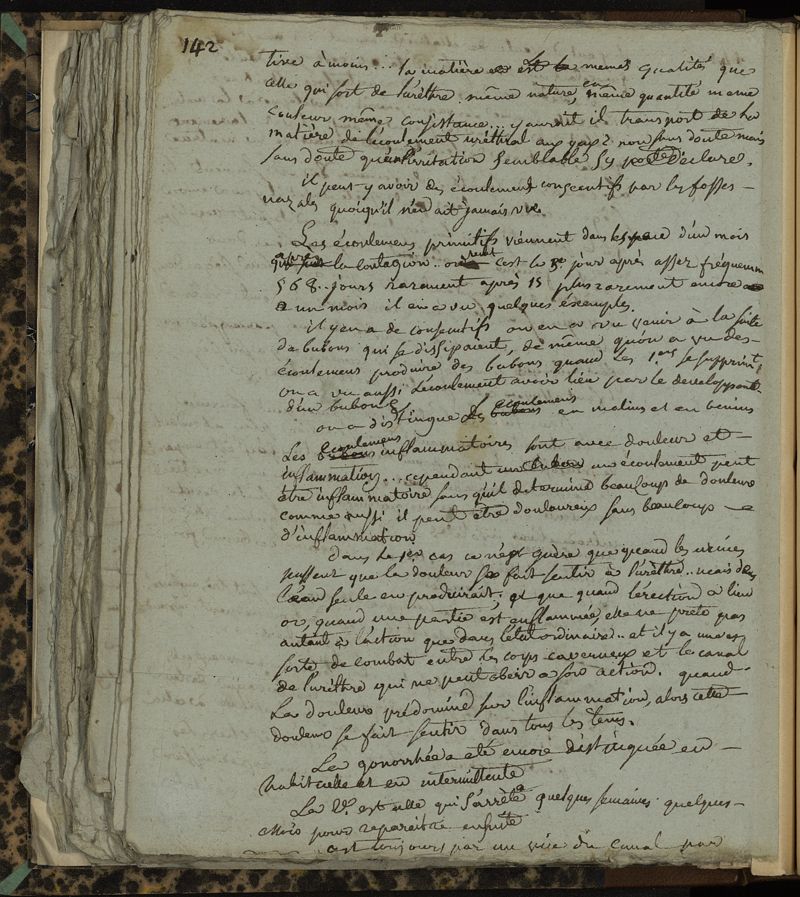 142
tive à moins... la matière est les memes qualités que
celle qui sort de l'uréthre. même nature, en même quantité meme
couleur même consistance. y auroit il transport de la
matière de l'écoulement uréthral aux yeux? non sans doute mais
sans doute qu'une irritation semblable s'y declare.
il peut y avoir des écoulement consecutifs par les fosses
nazales quoiqu'il n'en ait jamais vu.
Les écoulemens primitifs viennent dans l'espace d'un mois
apres la contagion.. c'est le 3e jour après assez fréquemm
5 6 8.. jours rarement après 15 plus rarement encore
a un mois il en a vu quelques éxemples.
il y en a de consecutifs on en a vu venir à la suite
de bubons qui se dissipaient, de même qu'on a vu des
écoulemens produire des bubons quand les 1ers se suppriment,
on a vu aussi l'écoulement avoir lieu par le developpement
d'un bubon
on a distingué les bubons écoulemens en malins et en benins
Les bubons écoulemens inflammatoires sont avec douleur et
inflammation... cependant un bubon un écoulement peut
être inflammatoire sans qu'il determine beaucoup de douleur
comme aussi il peut être douloureux sans beaucoup
d'inflammation
Dans le 1er cas ce n'est guère que quand les urines
passent que la douleur se fait sentir à l'uréthre.. mais
l'eau seule en produirait, et que quand l'érection a lieu
or, quand une partie est enflammée, elle ne prete pas
autant à l'action que dans l'état ordinaire.. et il y a une
sorte de combat entre les corps caverneux et le canal
de l'uréthre qui ne peut obeir a son action. quand
La douleur prédomine sur l'inflammation, alors cette
douleur se fait sentir dans tous les tems.
La gonorrhée a été encore distinguée en
habituelle et en intermittente
La 2e est celle qui s'arrète quelques semaines quelques
mois pour reparaitre ensuite
c'est toujours par un vice du canal par